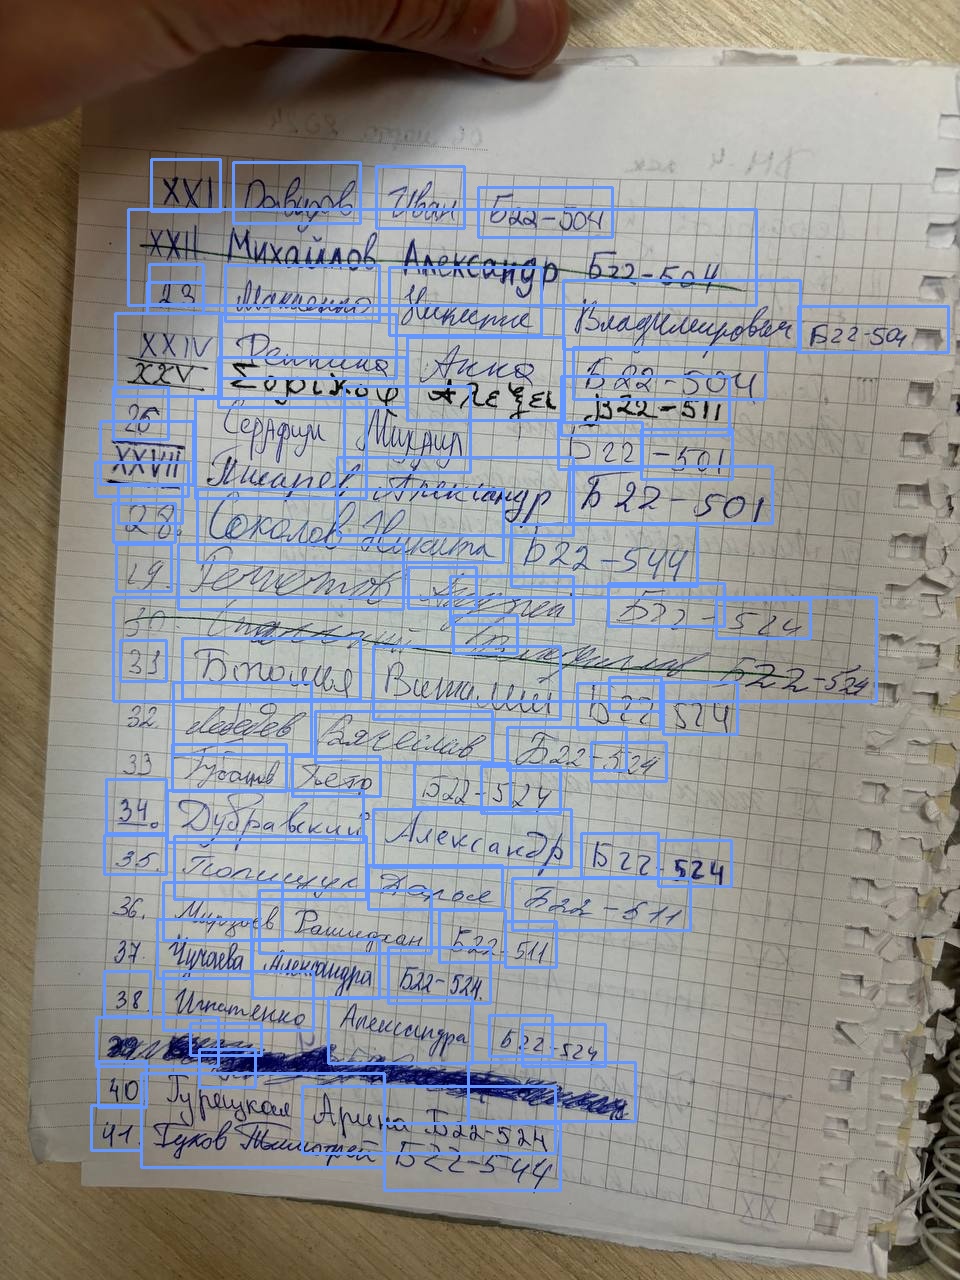 XXI Давыдов Иван Б22-504
XXII Михайлов Александр Б22-504
23 Никита Владимирович Б22-504
XXIV Репкина Анна Б22-504
XXV Σοριкοφ Αλεξει Б22-511
26 Серафим Михаил Б22-501
XXVII Писарев Александр Б22-501
28. Соколов Никита Б22-544
29. Решетов Андрей Б22-524
30. Владислав Б22-524
31 Виталий Б22-524
32. Лебедев Вячеслав Б22-524
33 Губанов Пётр Б22-524
34. Дубравский Александр Б22-524
35. Полищук Дарья Б22-511
36. Рашидхан Б22-511
37. Чучаева Александра Б22-524.
38 Игнатенко Александра Б22-524
39
40 Турецкая Арина Б22-524
41. Гуков Тимофей Б22-544